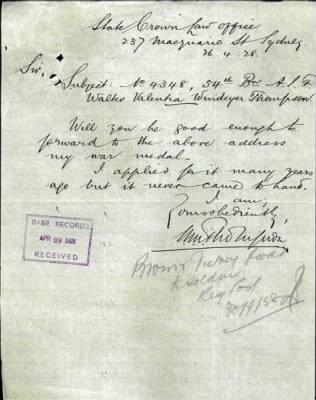 State Crown Law Office
237 Macquarie St Sydney
26.4.28.
Sir,
Subject: No 4348, 54th Bn A.I.F
Walter Valentia Windeyer Thompson.
Will you be good enough to
forward to the above address
my war medal.
I applied for it many years
ago but it never came to hand.
I am,
Yours obediently,
BASE RECORDS
APR 28 1928
RECEIVED
to soldier
Reg Post
30/4/28